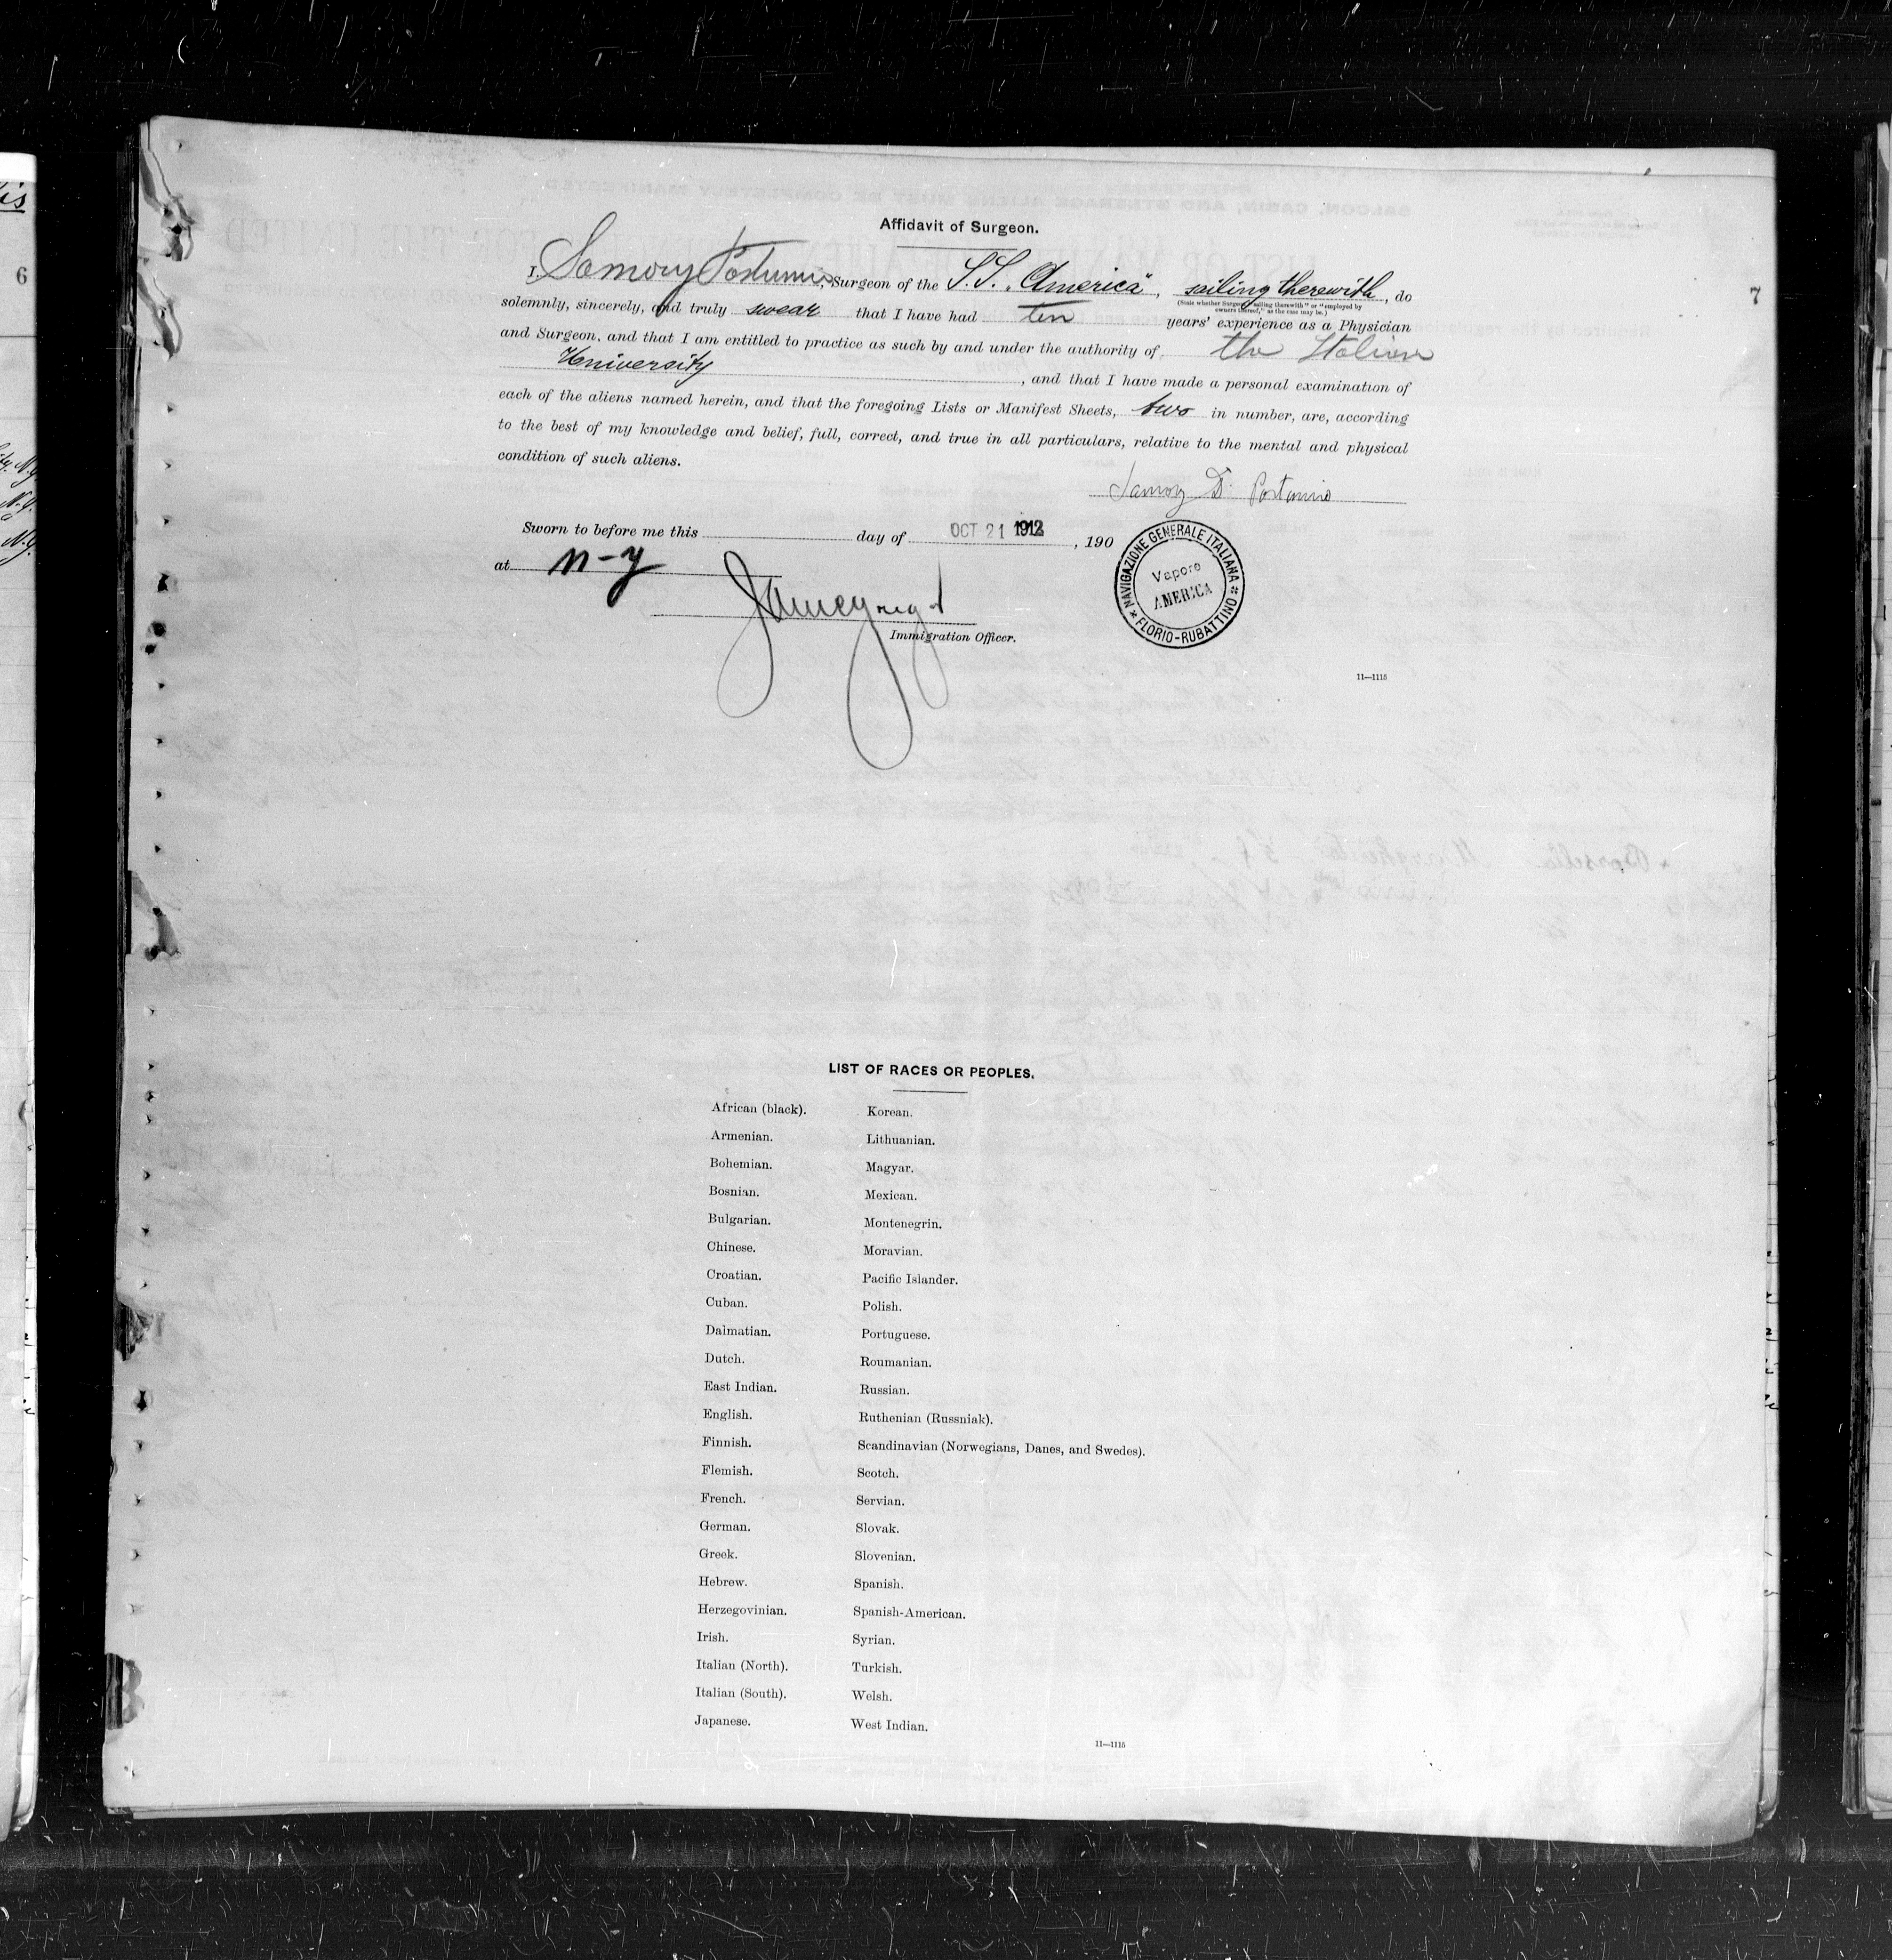 Affidavit of Surgeon.
I, Samory Postumio, Surgeon of the S.S. "America", sailing therewith, do
(State whether Surgeon "sailing therewith" or "employed by
owners thereof," as the case may be.)
solemnly, sincerely, and truly swear that I have had ten years' experience as a Physician
and Surgeon, and that I am entitled to practice as such by and under the authority of the Italian
University, and that I have made a personal examination of
each of the aliens named herein, and that the foregoing Lists or Manifest Sheets, two in number, are, according
to the best of my knowledge and belief, full, correct, and true in all particulars, relative to the mental and physical
condition of such aliens.
Samory D. Postumio
Sworn to before me this day of OCT 21 1912, 190
at n-y
Immigration Officer.
NAVIGAZIONE GENERALE ITALIANA
Vapore
AMERICA
FLORIO-RUBATTINO
11—1115
7
6
LIST OF RACES OR PEOPLES.
African (black). Korean.
Armenian. Lithuanian.
Bohemian. Magyar.
Bosnian. Mexican.
Bulgarian. Montenegrin.
Chinese. Moravian.
Croatian. Pacific Islander.
Cuban. Polish.
Dalmatian. Portuguese.
Dutch. Roumanian.
East Indian. Russian.
English. Ruthenian (Russniak).
Finnish. Scandinavian (Norwegians, Danes, and Swedes).
Flemish. Scotch.
French. Servian.
German. Slovak.
Greek. Slovenian.
Hebrew. Spanish.
Herzegovinian. Spanish-American.
Irish. Syrian.
Italian (North). Turkish.
Italian (South). Welsh.
Japanese. West Indian.
11—1115